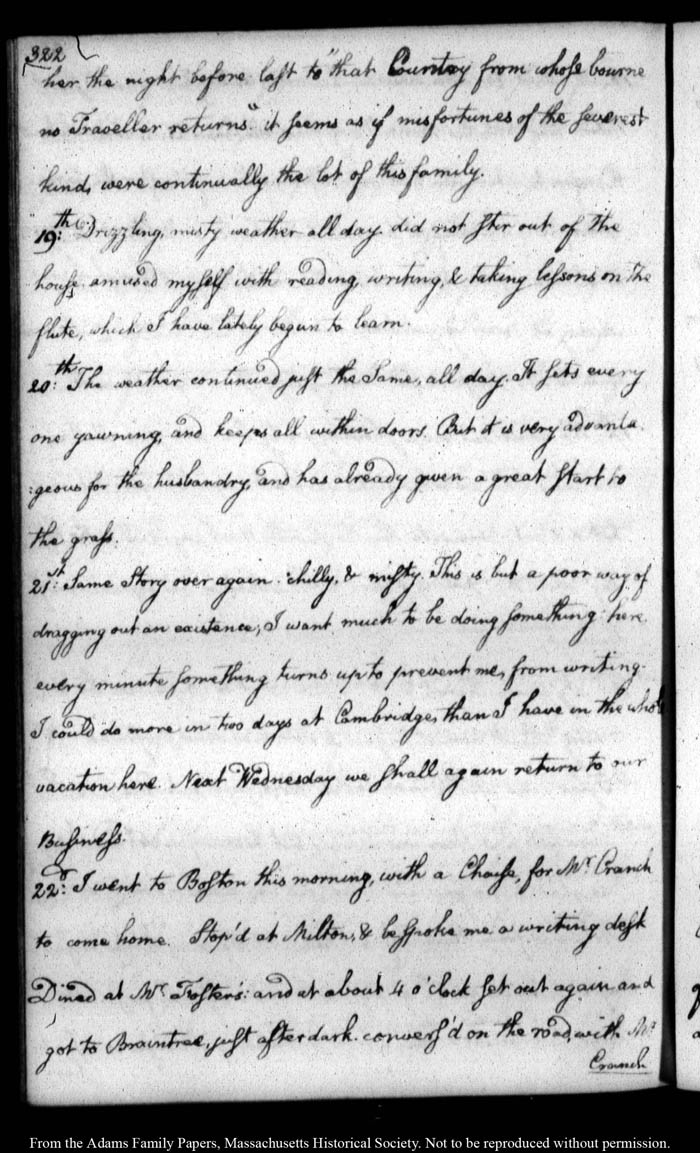 322
her the night before last to "that Country from whose bourne
no Traveller returns" it seems as if misfortunes of the severest
kind, were continually the lot of this family.
19:th Drizzling, misty weather all day. did not stir out of the
house. amused myself with reading, writing, & taking lessons on the
flute, which I have lately begun to learn.
20:th The weather continued just the same, all day. It sets every
one yawning, and keeps all within doors. But it is very advanta-
:geous for the husbandry, and has already given a great start to
the grass.
21:st Same Story over again. chilly, & misty. This is but a poor way of
dragging out an existence; I want much to be doing something: here
every minute something turns up to prevent me, from writing.
I could do more in two days at Cambridge, than I have in the whole
vacation here. Next Wednesday we shall again return to our
Business.
22:d I went to Boston this morning, with a Chaise, for Mr. Cranch
to come home. Stop'd at Milton, & bespoke me a writing desk
Dined at Mr. Foster's: and at about 4 o'clock set out again and
got to Braintree, just after dark. convers'd on the road, with Mr.
Cranch
From the Adams Family Papers, Massachusetts Historical Society. Not to be reproduced without permission.